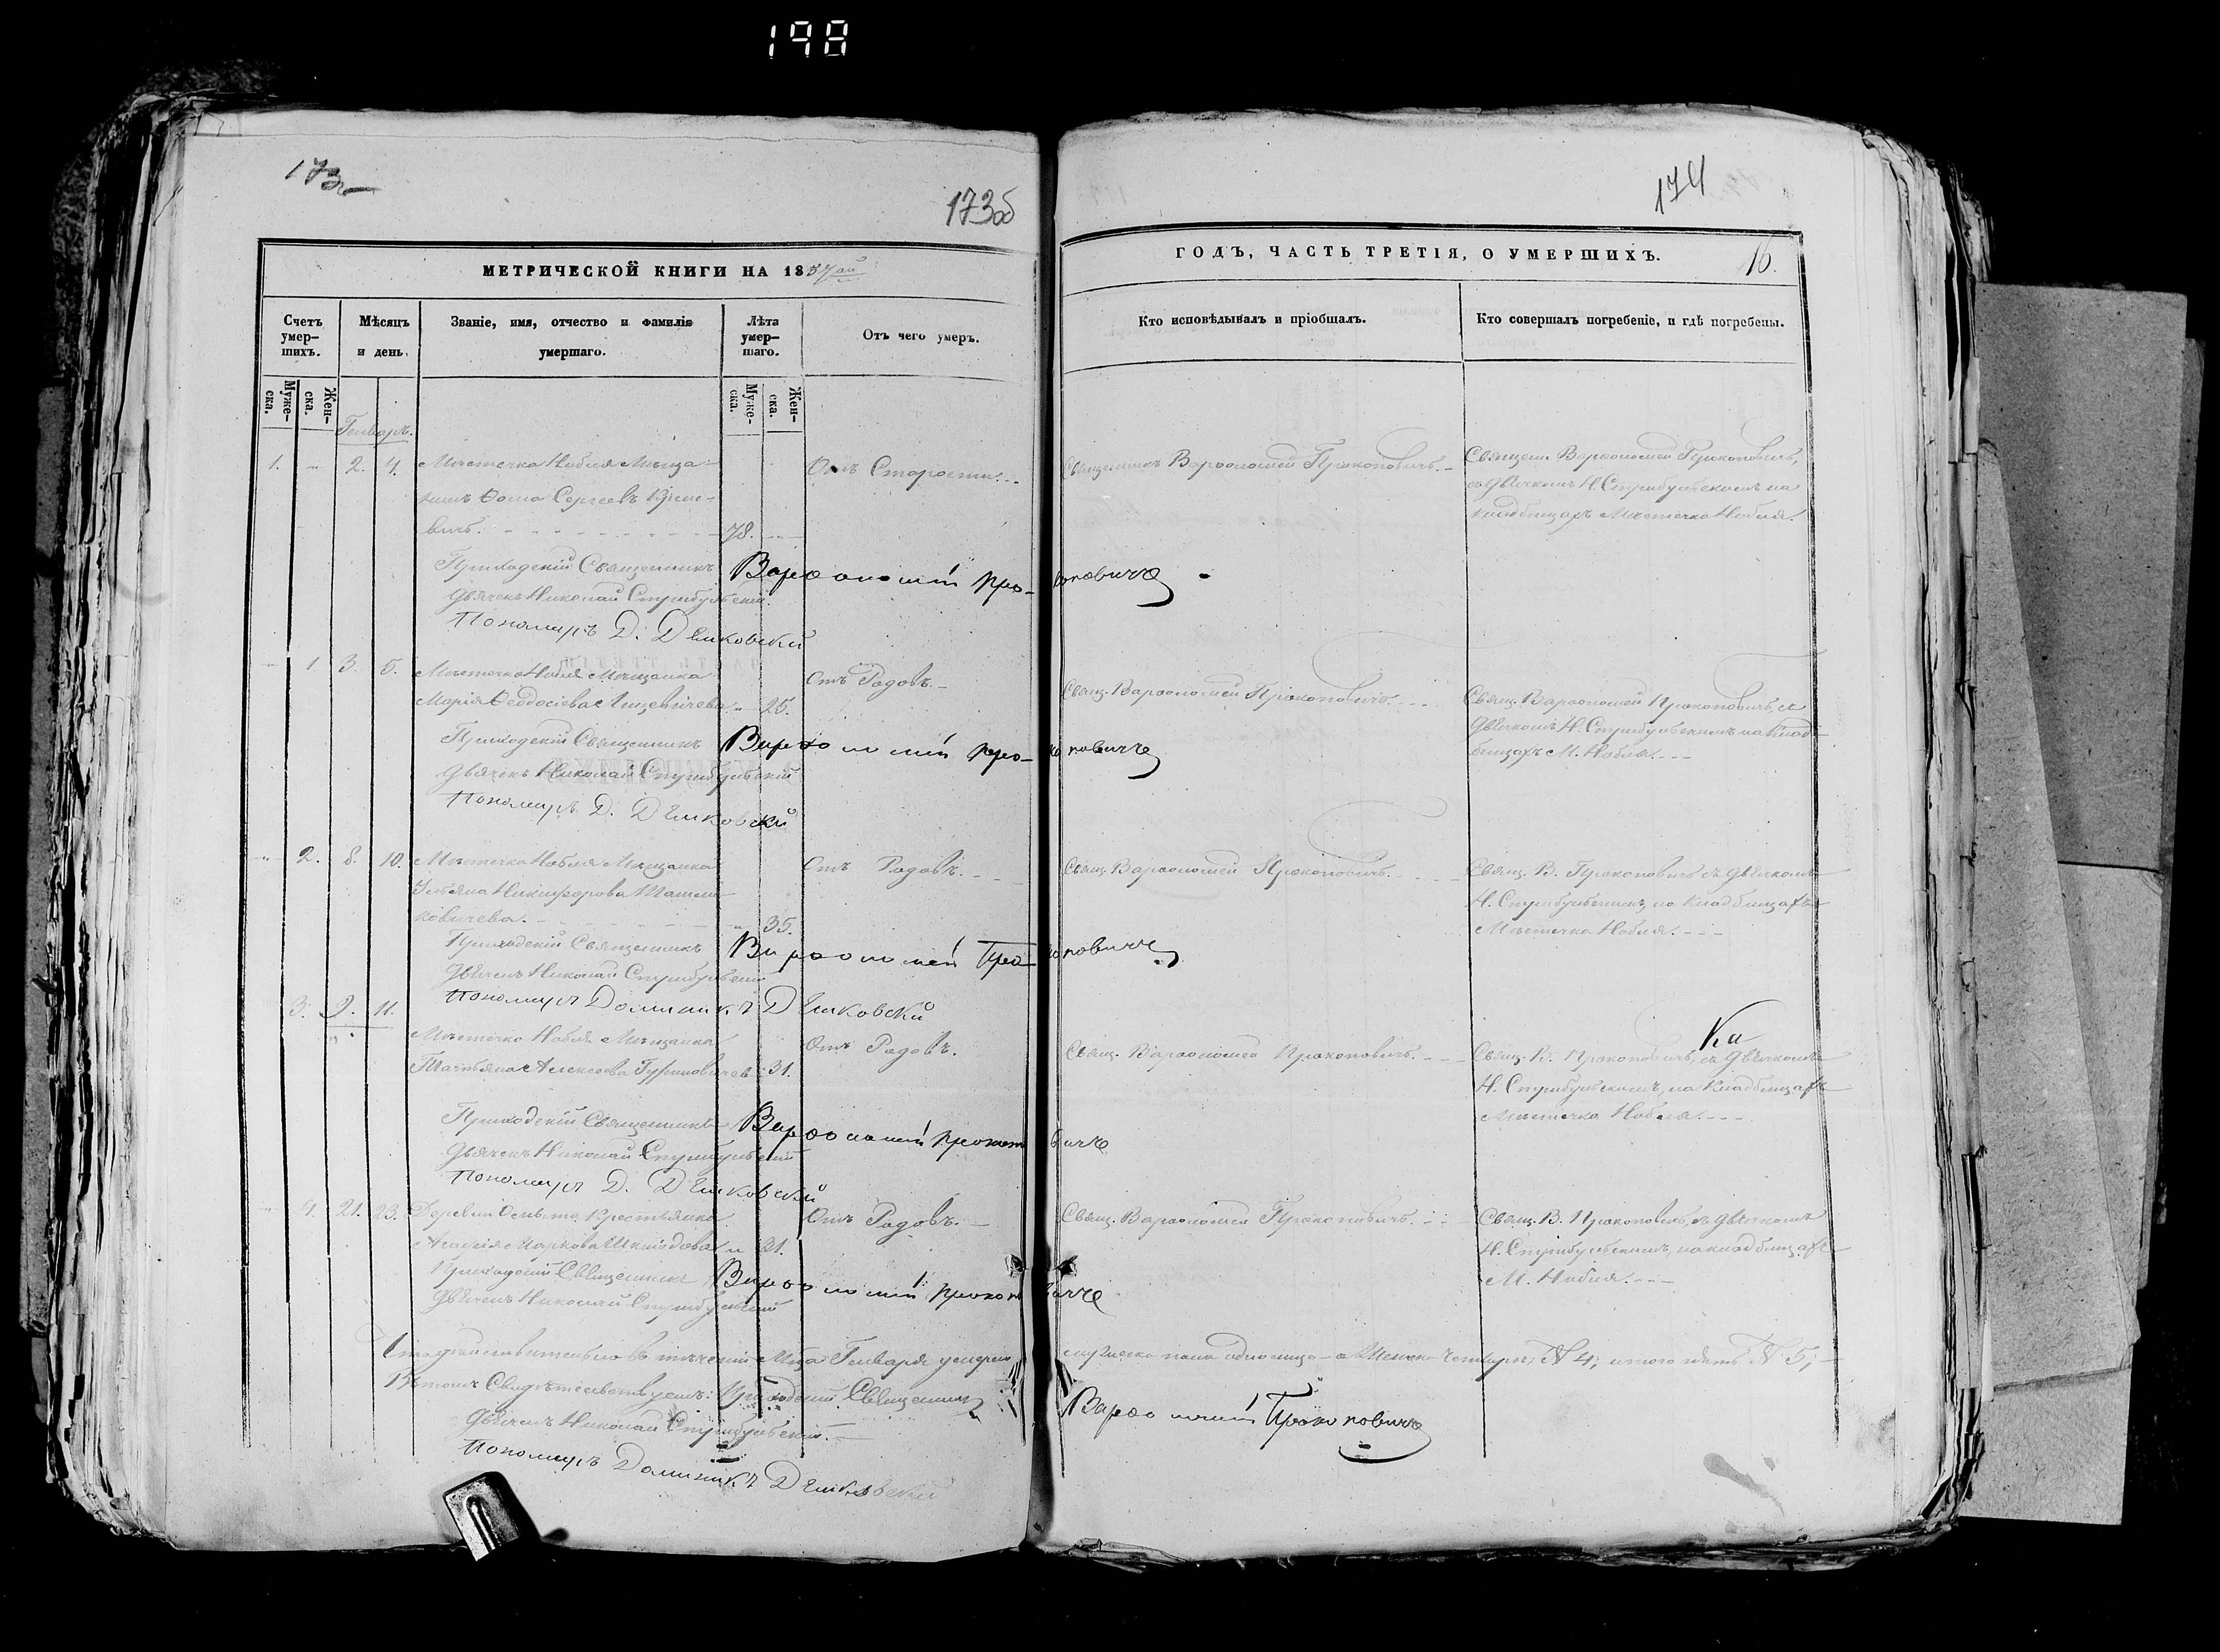 198
173
173об
174
МЕТРИЧЕСКОЙ КНИГИ НА 1857ой
ГОДЪ, ЧАСТЬ ТРЕТІЯ, О УМЕРШИХЪ.
16.
Счетъ умер-шихъ.
Мѣсяцъ и день.
Званіе, имя, отчество и фамилія умершаго.
Лѣта умер-шаго.
Отъ чего умеръ.
Кто исповѣдывалъ и пріобщалъ.
Кто совершалъ погребеніе, и гдѣ погребены.
Муже-ска.
Жен-ска.
Муже-ска.
Жен-ска.
Генварь.
1. " 2. 4. Мѣстечка Нобля Мѣща-
нинъ Ѳома Сергеевъ
вичъ. 78.
Отъ Старости.
Священникъ Варѳоломей Прокоповичъ.
Священ. Варѳоломей Прокоповичъ,
съ дьячкомъ Н. Стрибульскимъ на
кладбищахъ Мѣстечка Нобля.
Приходскій Священникъ Варѳоломій Прокоповичъ
дьячекъ Николай Стрибульскій.
Пономарь Д. Дешковскій
" 1 3. 5. Мѣстечка Нобля Мѣщанка
Марія Ѳеодосіева " 25.
Отъ Родовъ.
Свящ. Варѳоломей Прокоповичъ.
Свящ. Варѳоломей Прокоповичъ съ
дьячкомъ Н. Стрибульскимъ на клад-
бищахъ М. Нобля.
Приходскій Священникъ Варѳоломій Прокоповичъ
дьячекъ Николай Стрибульскій
Пономарь Д. Дешковскій
" 2. 8. 10. Мѣстечка Нобля Мѣщанка
Ульяна Никифорова
ковичева. " 35.
Отъ Родовъ.
Свящ. Варѳоломей Прокоповичъ.
Свящ. В. Прокоповичъ съ дьячкомъ
Н. Стрибульскимъ, на кладбищахъ
Мѣстечка Нобля.
Приходскій Священникъ Варѳоломей Прокоповичъ
дьячекъ Николай Стрибульскій
Пономарь Доминикъ Дешковскій
3. 9. 11.
Мѣстечка Нобля Мѣщанка
Татьяна Алексеева 31.
Отъ Родовъ.
Свящ. Варѳоломей Прокоповичъ.
Свящ. В. Прокоповичъ, съ дьячкомъ
Н. Стрибульскимъ, на кладбищахъ
Мѣстечка Нобля.
Приходскій Священникъ Варѳоломій Прокоповичъ
дьячекъ Николай Стрибульскій
Пономарь Д. Дешковскій
" 4. 21. 23. Деревни Крестьянка
Маркова " 31.
Отъ Родовъ.
Свящ. Варѳоломей Прокоповичъ.
Свящ. В. Прокоповичъ, съ дьячкомъ
Н. Стрибульскимъ, на кладбищахъ
М. Нобля.
Приходскій Священникъ Варѳоломій Прокоповичъ
дьячекъ Николай Стрибульскій
въ теченіи М-ца Генваря умерло мужеска пола одно лицо а Женска четыре, № 4, итого пять № 5,
Въ томъ Свидѣтельствуемъ: Приходскій Священникъ Варѳоломій Прокоповичъ
дьячекъ Николай Стрибульскій.
Пономарь Доминикъ Дешковскій